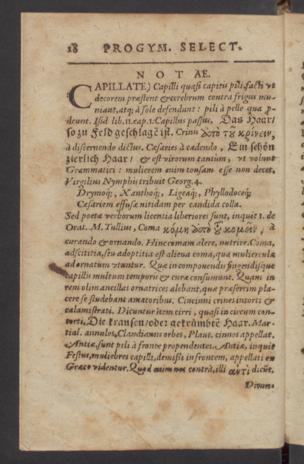 18 PROGYM. SELECT.
NOTAE.
CAPILLATE) Capilli quasi capitis pili, facti ut
decorem præstent & cerebrum contra frigus mu-
niant, atq; à sole defendant: pili à pelle qua p-
deunt. Isid. lib. 11. cap. 1. Capillus passus, Das Haar/
so zu Feld geschlagē ist. Crinis ἀπὸ τοῦ κρίνειν,
à discernendo dictus. Cæsaries à cædendo, Ein schön
zierlich Haar/ & est virorum tantùm, ut volunt
Grammatici: mulierem enim tonsam esse non decet.
Virgilius Nymphis tribuit Georg. 4.
Drymoq;, Xanthoq;, Ligeaq;, Phyllodoceq;
Cæsariem effusæ nitidam per candida colla.
Sed poëtæ verborum licentia liberiores sunt, inquit 1. de
Orat. M. Tullius, Coma κόμη ἀπὸ τοῦ κομεῖν, à
curando & ornando. Hinc comam alere, nutrire. Coma,
adscititia, seu adoptitia est aliena coma, qua muliercula
ad ornatum utuntur. Quæ in componendis fingendisque
capillis multum temporis & curæ consumunt. Quam in
rem olim ancillas ornatrices alebant, quæ præsertim pla-
cere se studebant amatoribus. Cincinni crines intorti &
calamistrati. Dicuntur item cirri, quasi in circum con-
torti, Die krausen/ oder gekrümbte Haar. Mar-
tial. annulos, Claudianus orbes, Plaut. cinnos appellat.
Antiæ, sunt pili à fronte propendentes. Antiæ, inquit
Festus, muliebres capilli, demissi in frontem, appellati ex
Græco videntur. Quod enim nos contrà, illi ἀντί dicūt.